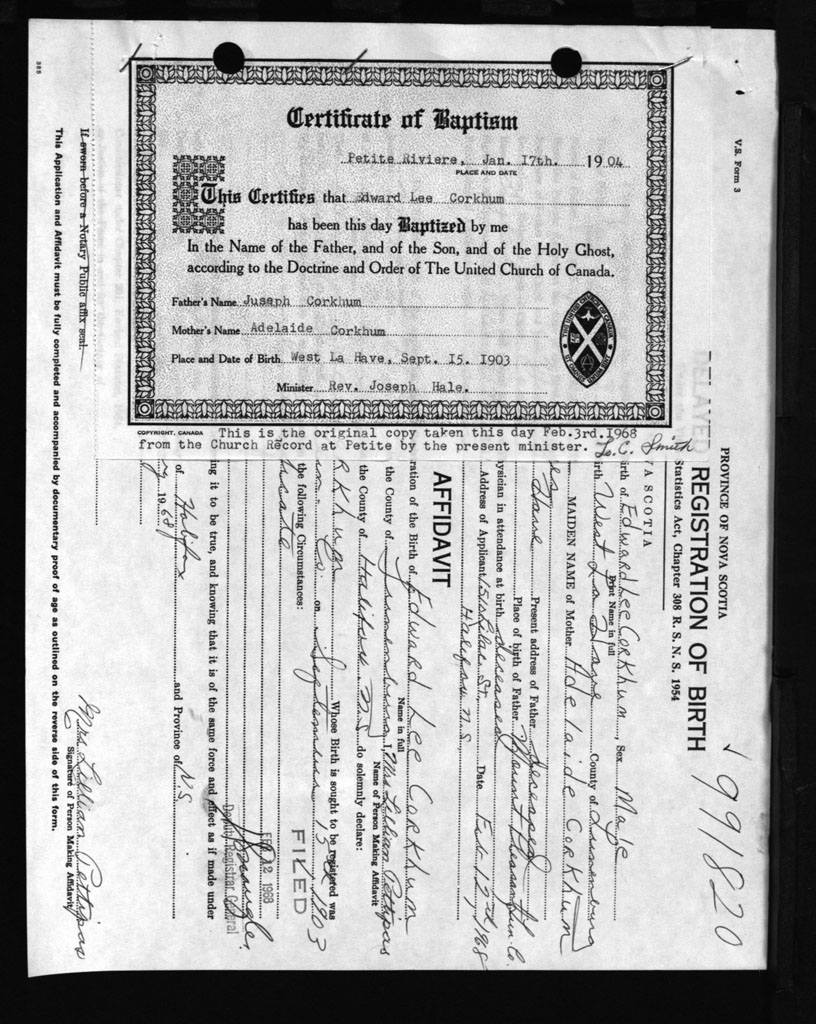 Certificate of Baptism
Petite Riviere, Jan. 17th. 1904
PLACE AND DATE
This Certifies that Edward Lee Corkhum
has been this day Baptized by me
In the Name of the Father, and of the Son, and of the Holy Ghost,
according to the Doctrine and Order of The United Church of Canada.
Father's Name Juseph Corkhum
Mother's Name Adelaide Corkhum
Place and Date of Birth West La Have, Sept. 15. 1903
Minister Rev. Joseph Hale.
COPYRIGHT, CANADA
This is the original copy taken this day Feb.3rd.1968
from the Church Record at Petite by the present minister. L.C. Smith
V.S. Form 3
1991820
PROVINCE OF NOVA SCOTIA
REGISTRATION OF BIRTH
Statistics Act, Chapter 308 R. S. N. S. 1954
A SCOTIA
irth of Edward Lee Corkhum, Sex Male
Print Name in full
irth West La Have County of Lunenburg
MAIDEN NAME of Mother Adelaide Corkhum
Have Present address of Father deceased
Place of birth of Father Mount Pleasant Lun. Co.
ysician in attendance at birth deceased
Address of Applicant St. Date Feb 12 1968
Halifax N.S.
AFFIDAVIT
ration of the Birth of Edward Lee Corkhum
Name in full
the County of Lunenburg I, Mrs. Lillian Pettipas
Name of Person Making Affidavit
the County of Halifax N.S. do solemnly declare:
rkhum Whose Birth is sought to be registered was
on September 15 1903
the following Circumstances:
FILED
ng it to be true, and knowing that it is of the same force and effect as if made under
FEB 12 1968
Deputy Registrar General
of Halifax and Province of N.S.
1968
Mrs Lillian Pettipas
Signature of Person Making Affidavit
If sworn before a Notary Public affix seal.
This Application and Affidavit must be fully completed and accompanied by documentary proof of age as outlined on the reverse side of this form.